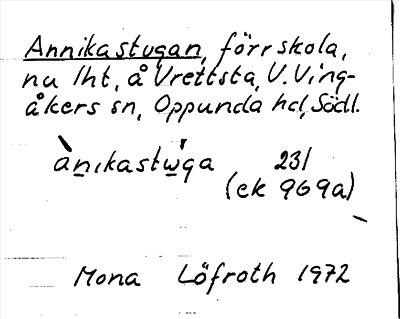 Annikastugan, förr skola,
nu lht, å Vrettsta, V. Ving-
åkers sn, Oppunda hd, Södl.
ànikastẃga 231
(ek 969a)
Mona Löfroth 1972